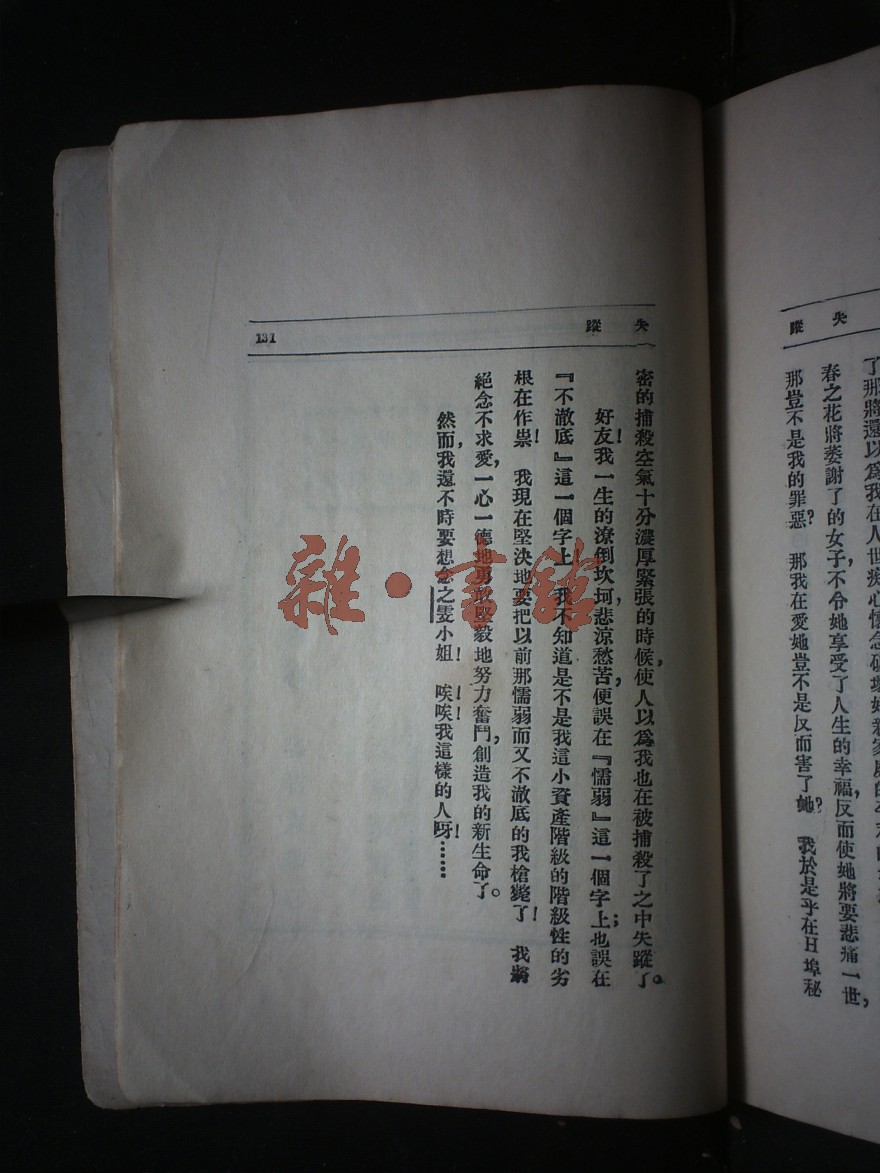 失蹤
了那將還以爲我在人世痴心懷念破壞她新家庭的
春之花將萎謝了的女子，不令她享受了人生的幸福，反而使她將要悲痛一世，
那豈不是我的罪惡？那我在愛她豈不是反而害了她？我於是乎在H埠秘
失蹤
131
密的捕殺空氣十分濃厚緊張的時候，使人以爲我也在被捕殺了之中失蹤了。
好友！我一生的潦倒坎坷，悲涼愁苦，便誤在『懦弱』這一個字上；也誤在
『不澈底』這一個字上！我不知道是不是我這小資產階級的階級性的劣
根在作祟！我現在堅決地要把以前那懦弱而又不澈底的我槍斃了！我將
絕念不求愛，一心一德地勇敢堅毅地努力奮鬥，創造我的新生命了。
然而，我還不時要想念之雯小姐！唉！唉！我這樣的人呀！……
雜·書館